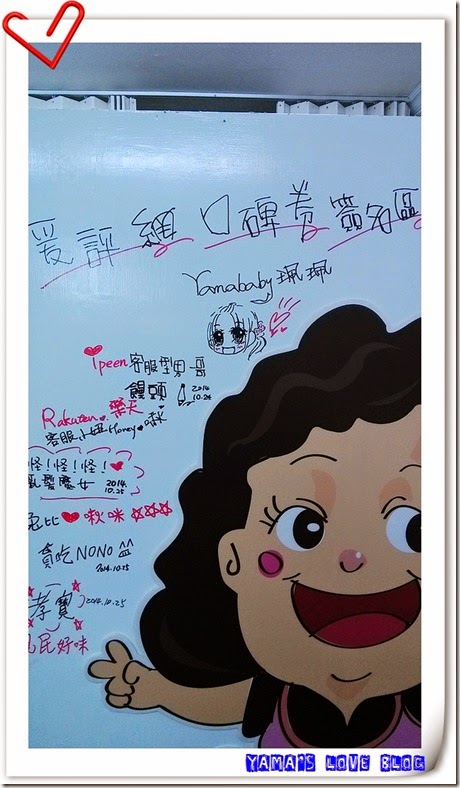 爱評網口碑券簽名區
Yamababy 珮珮
ipeen 客服型男哥
饅頭 2014
10.24
Rakuten 樂天
客服小妞Honey啾
怪!怪!怪!
亂髮魔女 2014.
10.25
比 啾咪
貪吃NONO
2014.10.25
孝寶 2014.10.25
民好味
YAMA'S LOVE BLOG